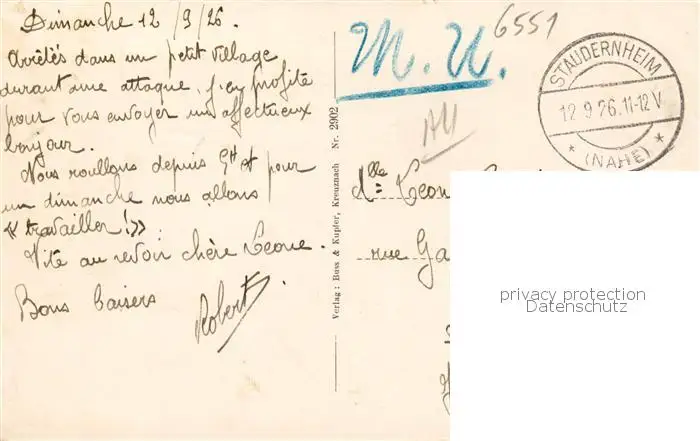 Dimanche 12/9/26.
Arrêtés dans un petit village
durant une attaque, j'en profite
pour vous envoyer un affectueux
bonjour.
Nous roullons depuis 9H et pour
un dimanche nous allons
« travailler !» .
Vite au revoir chère Leone.
Bons baisers
Robert.
Verlag: Buss & Kupfer, Kreuznach Nr. 2902
M. U.
6551
STAUDERNHEIM
12.9.26.11-12V
* (NAHE) *
Dlle Leon
rue Ga
privacy protection
Datenschutz